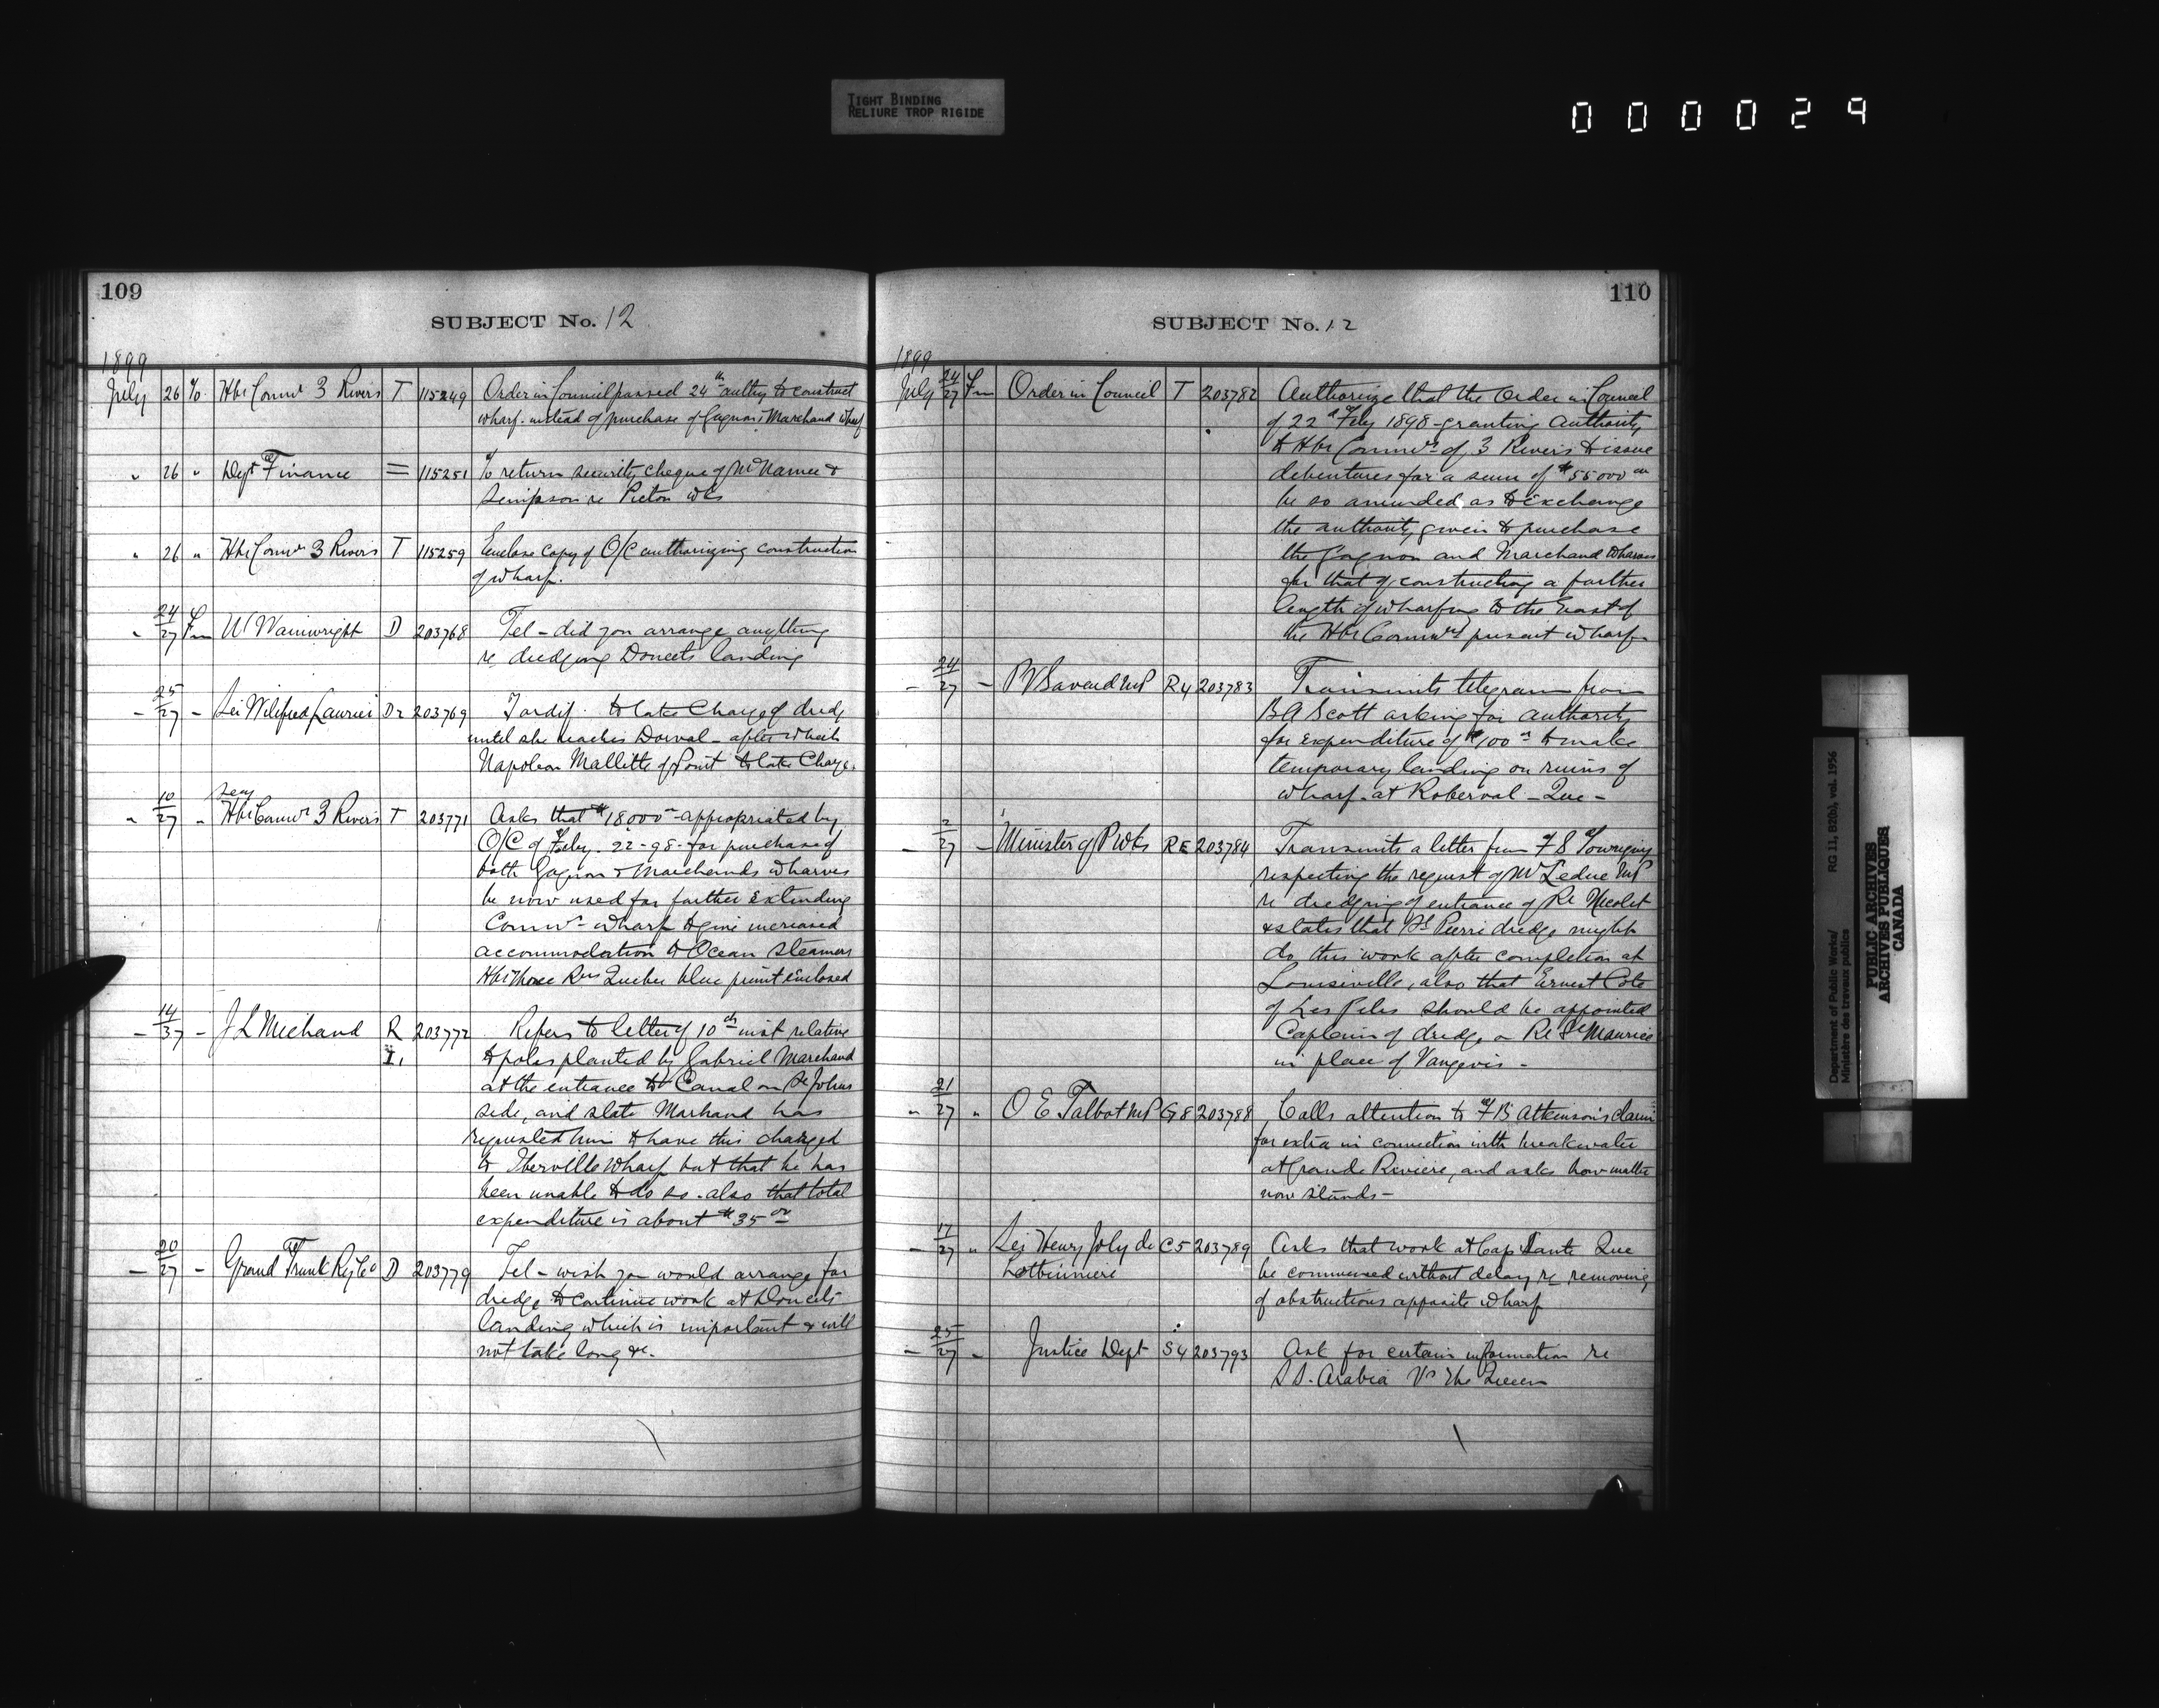 TIGHT BINDING
RELIURE TROP RIGIDE
000029
109
SUBJECT No. 12
1899
July 26 To Hbr Commrs 3 Rivers T 115249 Order in Council passed 24th authg to construct
wharf instead of purchase of Gagnon & Marchand wharf
" 26 " Dept of Finance = 115251 To return security cheque of McNamee &
Simpson re Picton wks
" 26 " Hbr Commrs 3 Rivers T 115259 Enclose copy of O/C authorizing construction
of wharf.
" 24/27 Fm W Wainwright D 203768 Tel - did you arrange anything
re dredging Doucets landing
- 25/27 - Sir Wilfred Laurier D2 203769 Tardif to take charge of dredge
until she reaches Dorval - after which
Napoleon Mallette of Pont to take Charge.
Secy
" 10/27 " Hbr Commrs 3 Rivers T 203771 Asks that $18000 - appropriated by
O/C of Feby. 22-98- for purchase of
both Gagnon & Marchands wharves
be now used for further extending
Commrs wharf to give increased
accommodation to Ocean steamers
Hbr Three Rvrs Quebec blue print enclosed
- 14/37 - J L Michaud R 203772 Refers to letter of 10th inst relative
I, to poles planted by Gabriel Marchand
at the entrance to Canal on St Johns
side, and state Marhand has
requested him to have this charged
to Iberville Wharf but that he has
been unable to do so. also that total
expenditure is about $35 00
- 20/27 - Grand Trunk Ry Co D 203779 Tel - wish you would arrange for
dredge to continue work at Doucets
landing which is important & will
not take long &c.
110
SUBJECT No. 12
1899
July 24/27 Fm Order in Council T 203782 Authorize that the Order in Council
of 22d Feby 1898 - granting authority
to Hbr Commrs of 3 Rivers to issue
debentures for a sum of $55000 00
be so amended as to exchange
the authority given to purchase
the Gagnon and Marchand Wharves
for that of constructing a further
length of wharfing to the East of
the Hbr Commrs present wharf
- 24/27 - P V Savard MP R4 203783 Transmits telegram from
B A Scott asking for authority
for expenditure of $100 00 to make
temporary landing on ruins of
wharf at Roberval - Que -
- 2/27 - Minister of P Wks RE 203784 Transmits a letter from F S
respecting the request of Mr Leduc MP
re dredging of entrance of Rr Nicolet
& states that St Pierre dredge might
do this work after completion at
Louiseville, also that Ernest Cote
of Les Piles should be appointed
Captain of dredge on Rr St Maurice
in place of Vangevis -
" 21/27 " O E Talbot MP G8 203788 Calls attention to F B Atkinson's claim
for extra in connection with breakwater
at Grande Riviere, and asks how matter
now stands -
- 17/27 " Sir Henry Joly de C5 203789 Asks that work at Cap Sante Que
Lotbiniere be commenced without delay re removing
of obstructions opposite wharf
- 25/27 - Justice Dept S4 203793 Ask for certain information re
S S. Arabia Vs The Queen
Department of Public Works/
Ministère des travaux publics
RG 11, B2(b), vol. 1956
PUBLIC ARCHIVES
ARCHIVES PUBLIQUES
CANADA